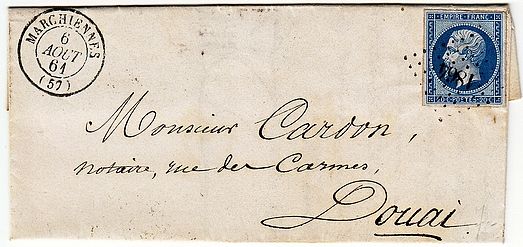 MARCHIENNES
6
AOUT
61
(57)
EMPIRE FRANC
20 c. POSTES 20 c.
Monsieur Cardon,
notaire, rue des Carmes,
Douai